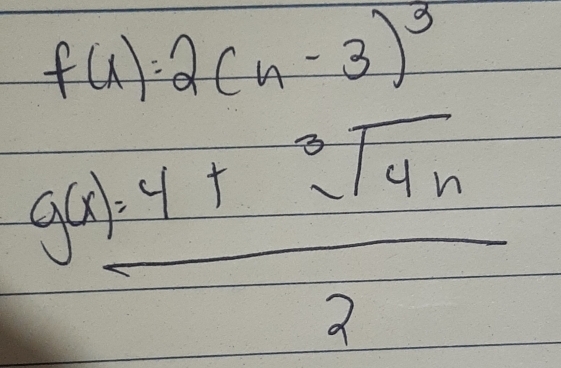 f(x)=2(n-3)³
g(x)=4+∛4n
2